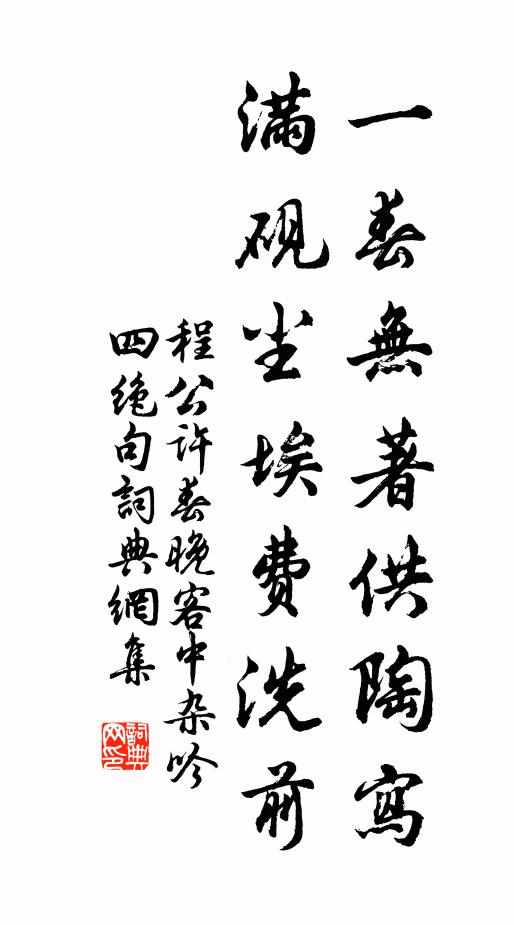 一春無著供陶寫
滿硯尘埃費洗前
程公許春晚客中杂吟
四绝句詞典網集
詞典
网印